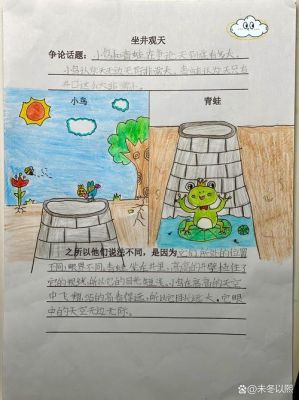 坐井观天
争论话题：小鸟和青蛙在争论天到底有多大。
小鸟认为天无边无际非常大，青蛙认为天只有
井口这么大非常小。
小鸟
青蛙
之所以他们说法不同，是因为它们所处的位置
不同，眼界不同，青蛙坐在井里，高高的井壁挡住了
它的视线，所以它的目光短浅。小鸟在高高的天空
中飞翔，站的高看得远，所以它目光远大，它眼
中的天空无边无际。
@未冬以熙